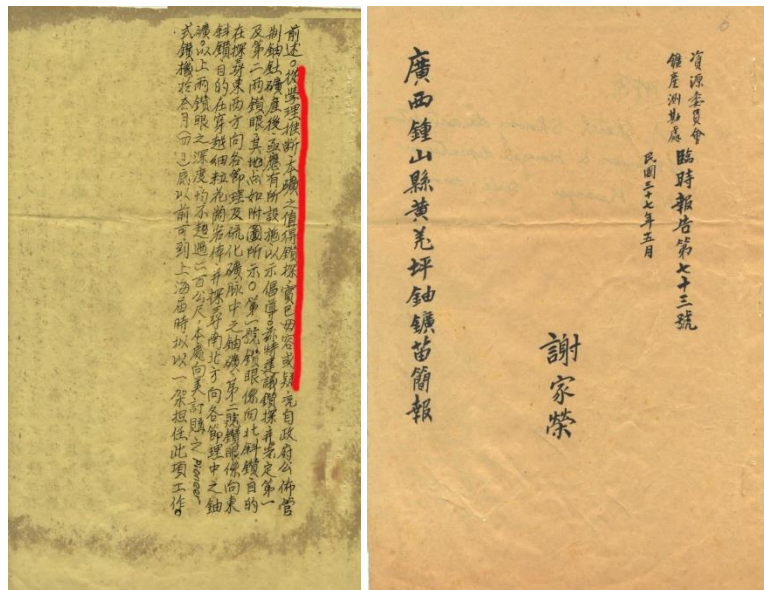 資源委員會
鑛產測勘處
臨時報告第七十三號
民國三十七年五月
謝家榮
廣西鍾山縣黃羌坪鈾鑛苗簡報
前述。從學理推斷，本礦之值得鑽探，實已毋容或疑，况自政府公佈管
制鈾釷礦產後，亟應有所設施，以示倡導。茲特建議鑽探，并定第一
及第二兩鑽眼，其地点如附圖所示。第一號鑽眼係向北斜鑽，目的
在探尋東西方向各節理及硫化礦脈中之鈾礦，第二號鑽眼係向東
斜鑽，目的在穿越細粒花崗岩体，并探尋南北方向各節理中之鈾
礦。以上兩鑽眼之深度均不超過二百公尺，本處向美訂購之Pioneer
式鑽機於月(四)底以前可到上海，屆時擬以一架担任此項工作。